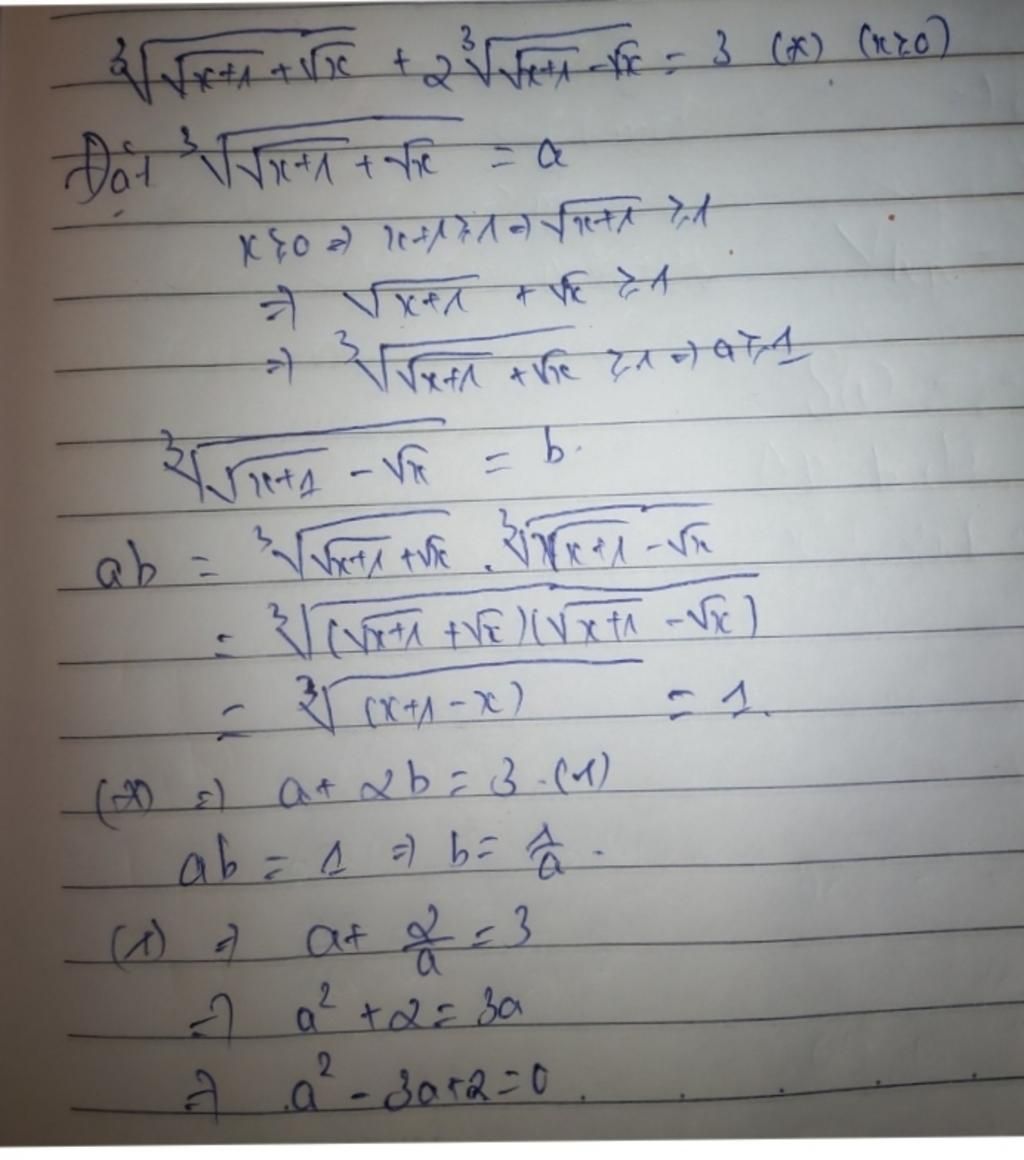 ∛(√(x+1) + √x) + 2∛(√(x+1) - √x) = 3 (*) (x≥0)
Đặt ∛(√(x+1) + √x) = a
x≥0 ⇒ x+1≥1 ⇒ √(x+1) ≥1
⇒ √(x+1) + √x ≥1
⇒ ∛(√(x+1) + √x) ≥1 ⇒ a≥1
∛(√(x+1) - √x) = b.
ab = ∛(√(x+1) + √x) . ∛(√(x+1) - √x)
= ∛((√(x+1) + √x)(√(x+1) - √x))
= ∛(x+1-x) = 1.
(*) ⇒ a + 2b = 3 .(1)
ab = 1 ⇒ b = 1/a .
(1) ⇒ a + 2/a = 3
⇒ a² + 2 = 3a
⇒ a² - 3a + 2 = 0